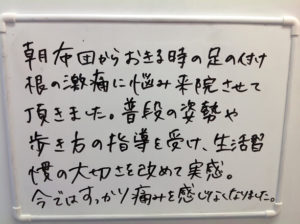 朝布団からおきる時の足の付け
根の激痛に悩み来院させて
頂きました。普段の姿勢や
歩き方の指導を受け、生活習
慣の大切さを改めて実感。
今ではすっかり痛みを感じなくなりました。